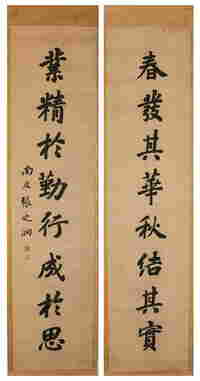 春發其華秋結其實
業精於勤行成於思
南皮張之洞